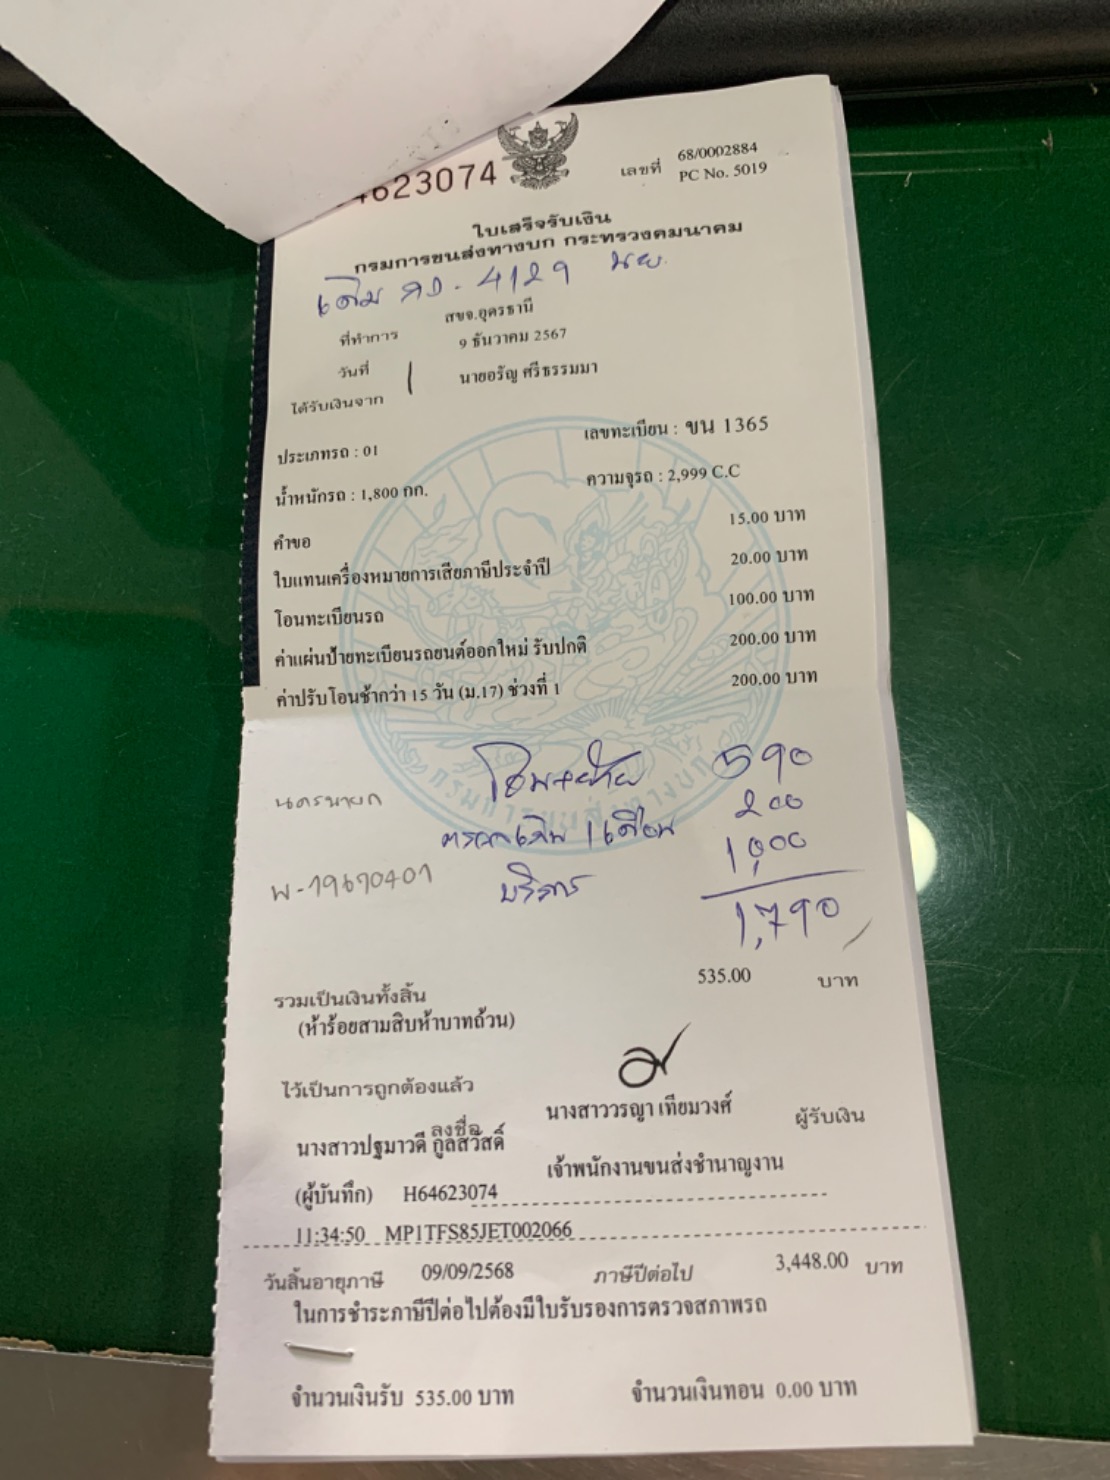 4623074
เลขที่ 68/0002884
PC No. 5019
ใบเสร็จรับเงิน
กรมการขนส่งทางบก กระทรวงคมนาคม
เดิม - 4129 นย.
ที่ทำการ สขจ.อุดรธานี
วันที่ 9 ธันวาคม 2567
ได้รับเงินจาก นายอรัญ ศรีธรรมมา
ประเภทรถ : 01 เลขทะเบียน : ขน 1365
น้ำหนักรถ : 1,800 กก. ความจุรถ : 2,999 C.C
คำขอ 15.00 บาท
ใบแทนเครื่องหมายการเสียภาษีประจำปี 20.00 บาท
โอนทะเบียนรถ 100.00 บาท
ค่าแผ่นป้ายทะเบียนรถยนต์ออกใหม่ รับปกติ 200.00 บาท
ค่าปรับโอนช้ากว่า 15 วัน (ม.17) ช่วงที่ 1 200.00 บาท
กรมการขนส่งทางบก
นครนายก โอน+ย้าย 590
1 เดือน 200
พ-19670401 บริการ 1,000
1,790
รวมเป็นเงินทั้งสิ้น 535.00 บาท
(ห้าร้อยสามสิบห้าบาทถ้วน)
ไว้เป็นการถูกต้องแล้ว
ลงชื่อ นางสาววรญา เทียมวงศ์ ผู้รับเงิน
นางสาวปฐมาวดี กูลสวัสดิ์
เจ้าพนักงานขนส่งชำนาญงาน
(ผู้บันทึก) H64623074
11:34:50 MP1TFS85JET002066
วันสิ้นอายุภาษี 09/09/2568 ภาษีปีต่อไป 3,448.00 บาท
ในการชำระภาษีปีต่อไปต้องมีใบรับรองการตรวจสภาพรถ
จำนวนเงินรับ 535.00 บาท จำนวนเงินทอน 0.00 บาท